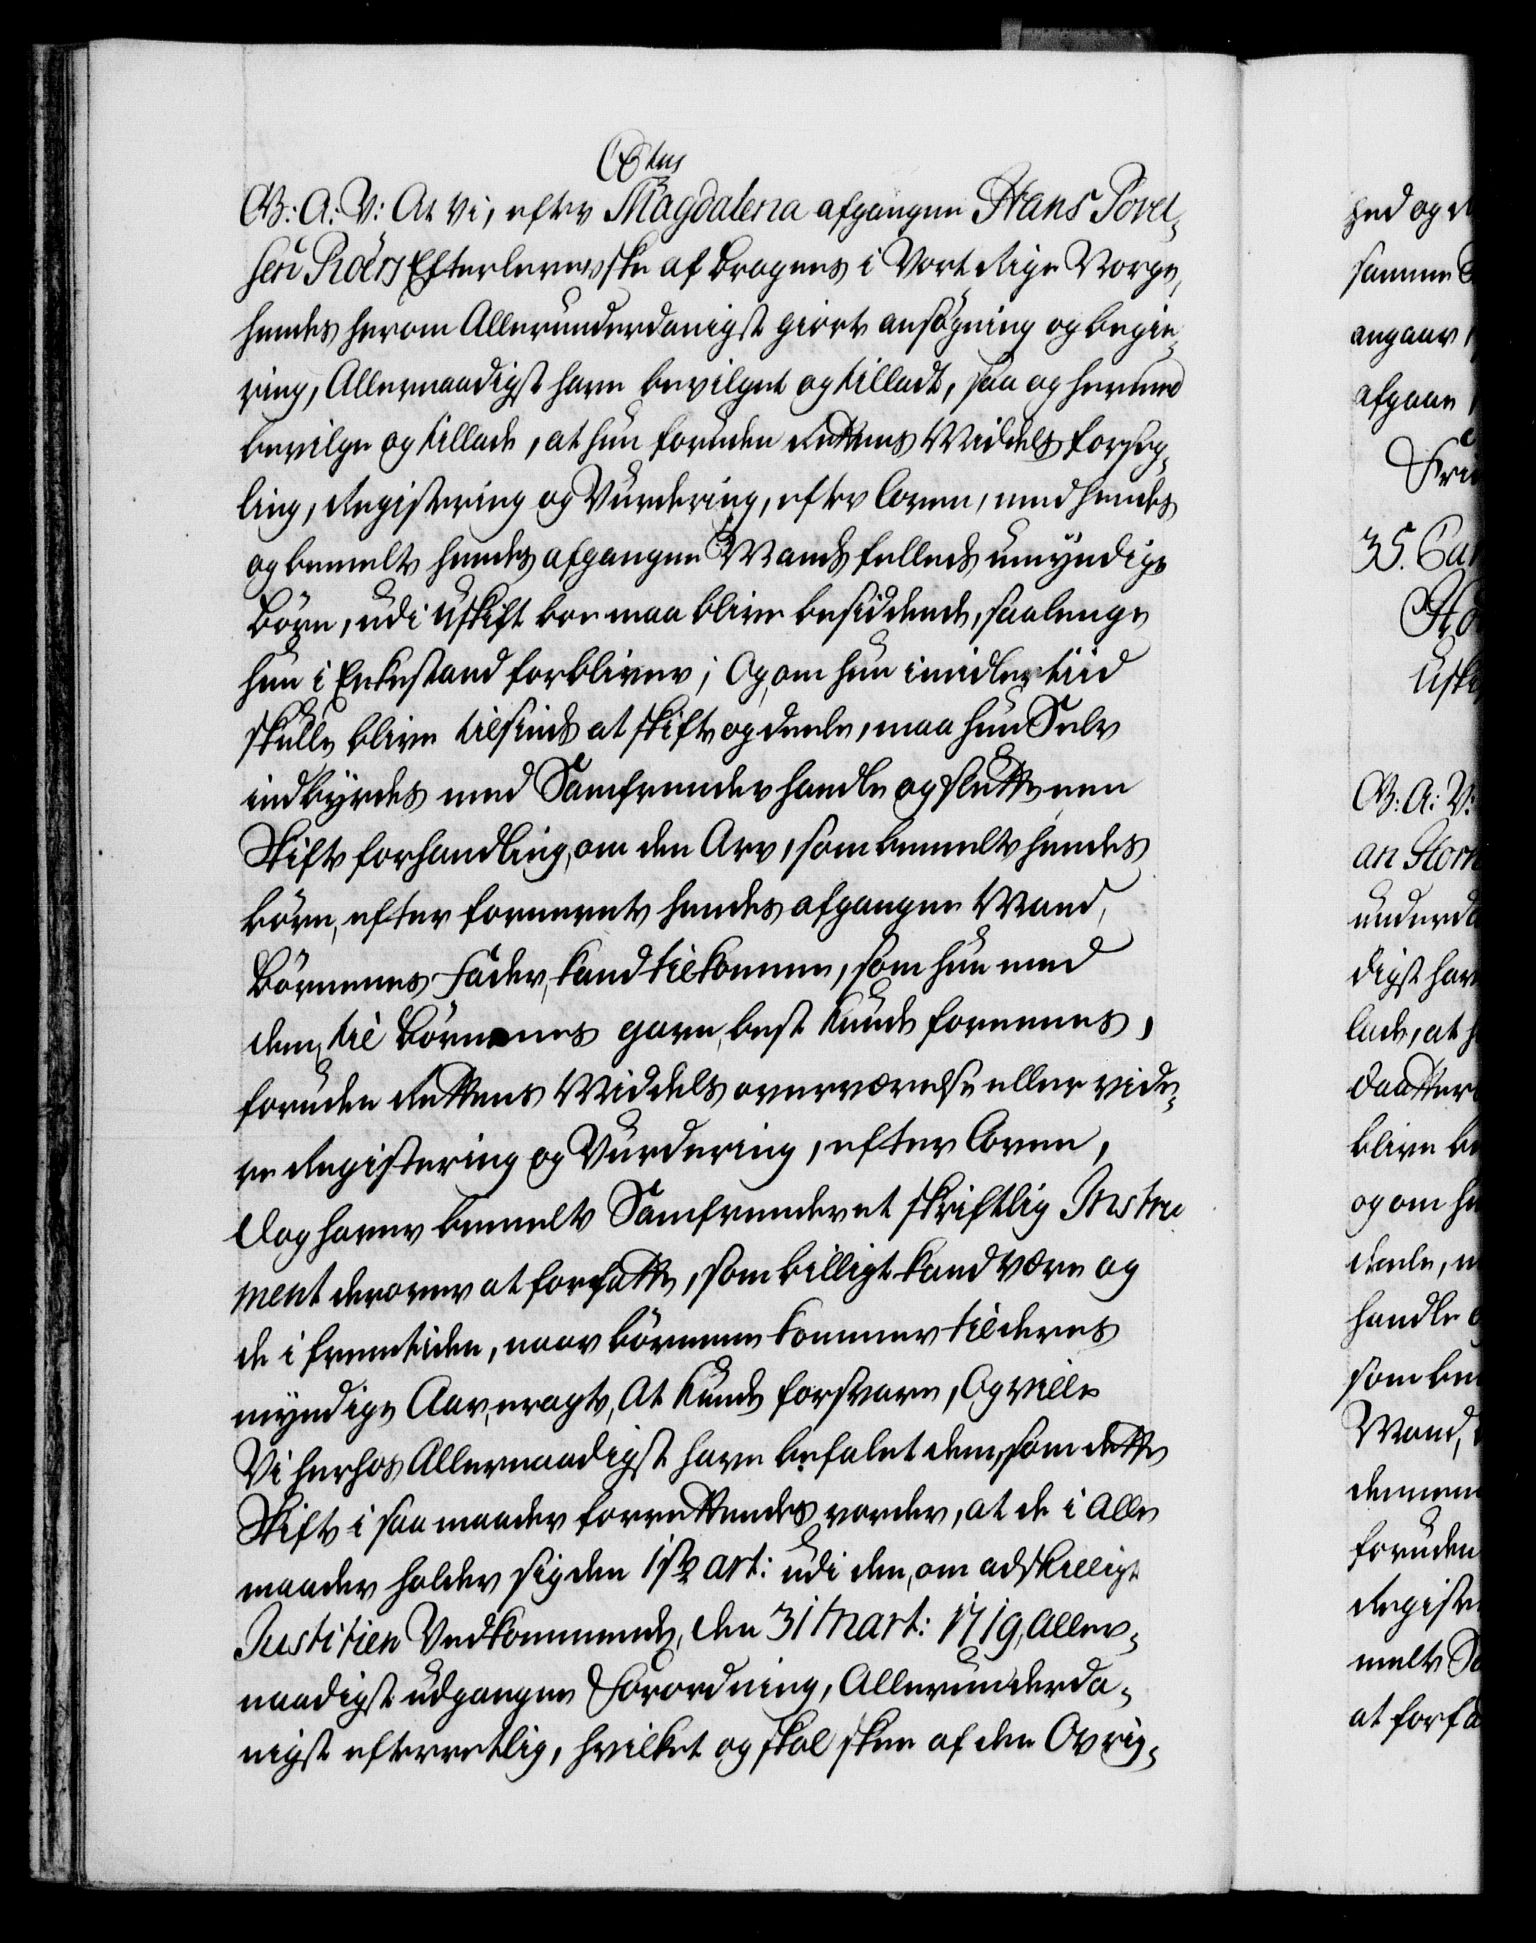 C6tus
G: A: V: At Vi, efter Magdalena afgangne Hans Povel-
sen Roërs Efterleverske af Bragnes i Vort Rige Norge,
hendes herom Allerunderdanigst giorte ansøgning og begie-
ring, Allernaadigst have bevilget og tilladt, saa og hermed
bevilge og tillade, at hun foruden Rettens Middels forseg-
ling, Registering og Vurdering, efter Loven, med hendes
og bemelte hendes afgangne Mands fælleds umyndige
Børn, udi uskift boe maa blive besiddende, saalenge
hun i Enkestand forbliver; Og, om hun imidlertiid
skulle blive tilsinds at skifte og deele, maa hun Selv
indbyrdes med Samfrender handle og slutte een
Skifte forhandling, om den Arv, som bemelte hendes
børn, efter fornevnte hendes afgangne Mand,
Børnenes Fader, kand tilkomme, som hun med
dem, til Børnenes gavn, best kunde foreenes,
foruden Rettens Middels overværelse eller vide-
re Registering og Vurdering, efter Loven,
dog haver bemelte Samfrender et skriftlig Instru
ment derover at forfatte, som billigt kand være og
de i fremtiden, naar børnene kommer til deres
myndige Aar, eragte, At kunde forsvare, Og ville
Vi herhos Allernaadigst have befalet dem, som dette
Skifte i saa maader forrettendes vorder, at de i alle
maader holder sig den 1ste art: udi den, om adskilligt
Justitien Vedkommende, den 31 Mart: 1719, Aller-
naadigst udgangne Forordning, Allerunderda-
nigst efterretlig, hvilket og skal skee af den Øvrig-
hed og
samme
angaar
afgaae
Fri
35.
Usk
G: A: V:
an Storm
underda
digst hav
lade, at h
Daatter
blive be
og om h
deele, m
handle
som be
Mand,
dem
foruden
Registe
melte Sa
at forfa